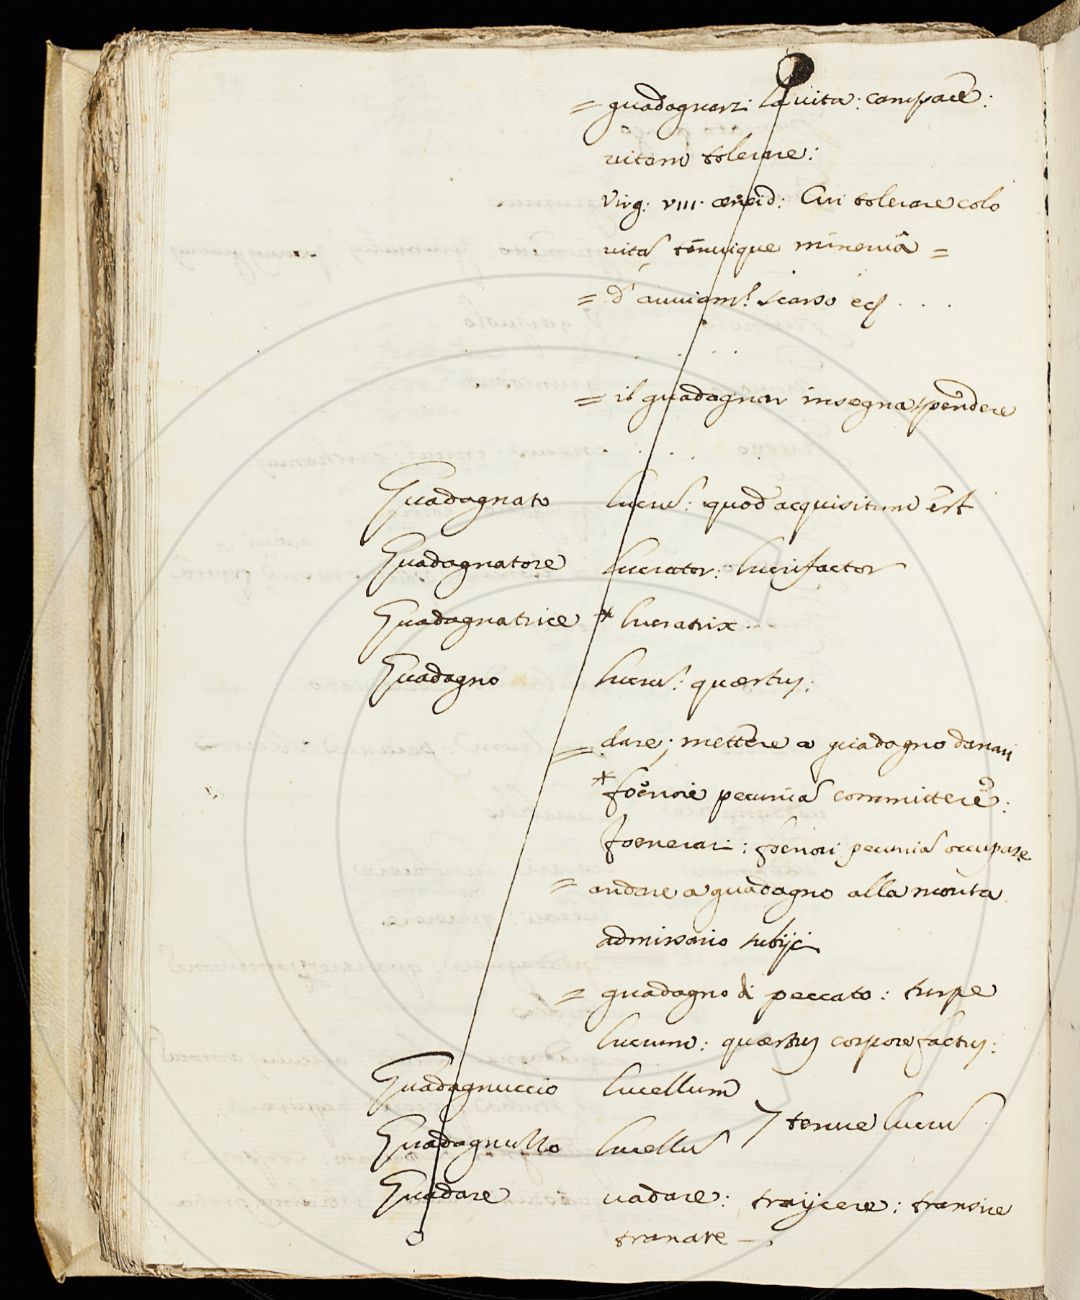 = guadagnarsi la vita: campare:
vitam tolerare:
Virg: VIII. æneid: Cui tolerare colo
vitã tenuique minervâ =
= d' avviam.to scarso ec
= il guadagnar insegna spendere
Guadagnato lucrũ: quod acquisitum est
Guadagnatore lucrator: lucrifactor
Guadagnatrice * lucratrix
Guadagno lucrũ: quæstus:
= dare; mettere a guadagno danari
* foenore pecuniã committere:
foenerari: foenori pecuniã occupare
= andare a guadagno alla monta
admissario subijci
= guadagno di peccato: turpe
lucrum: quæstus corpore factus:
Guadagnuccio lucellum
7 tenue lucrũ
Guadagnuzzo lucellũ
Guadare vadare: traijcere: transire
tranare —.